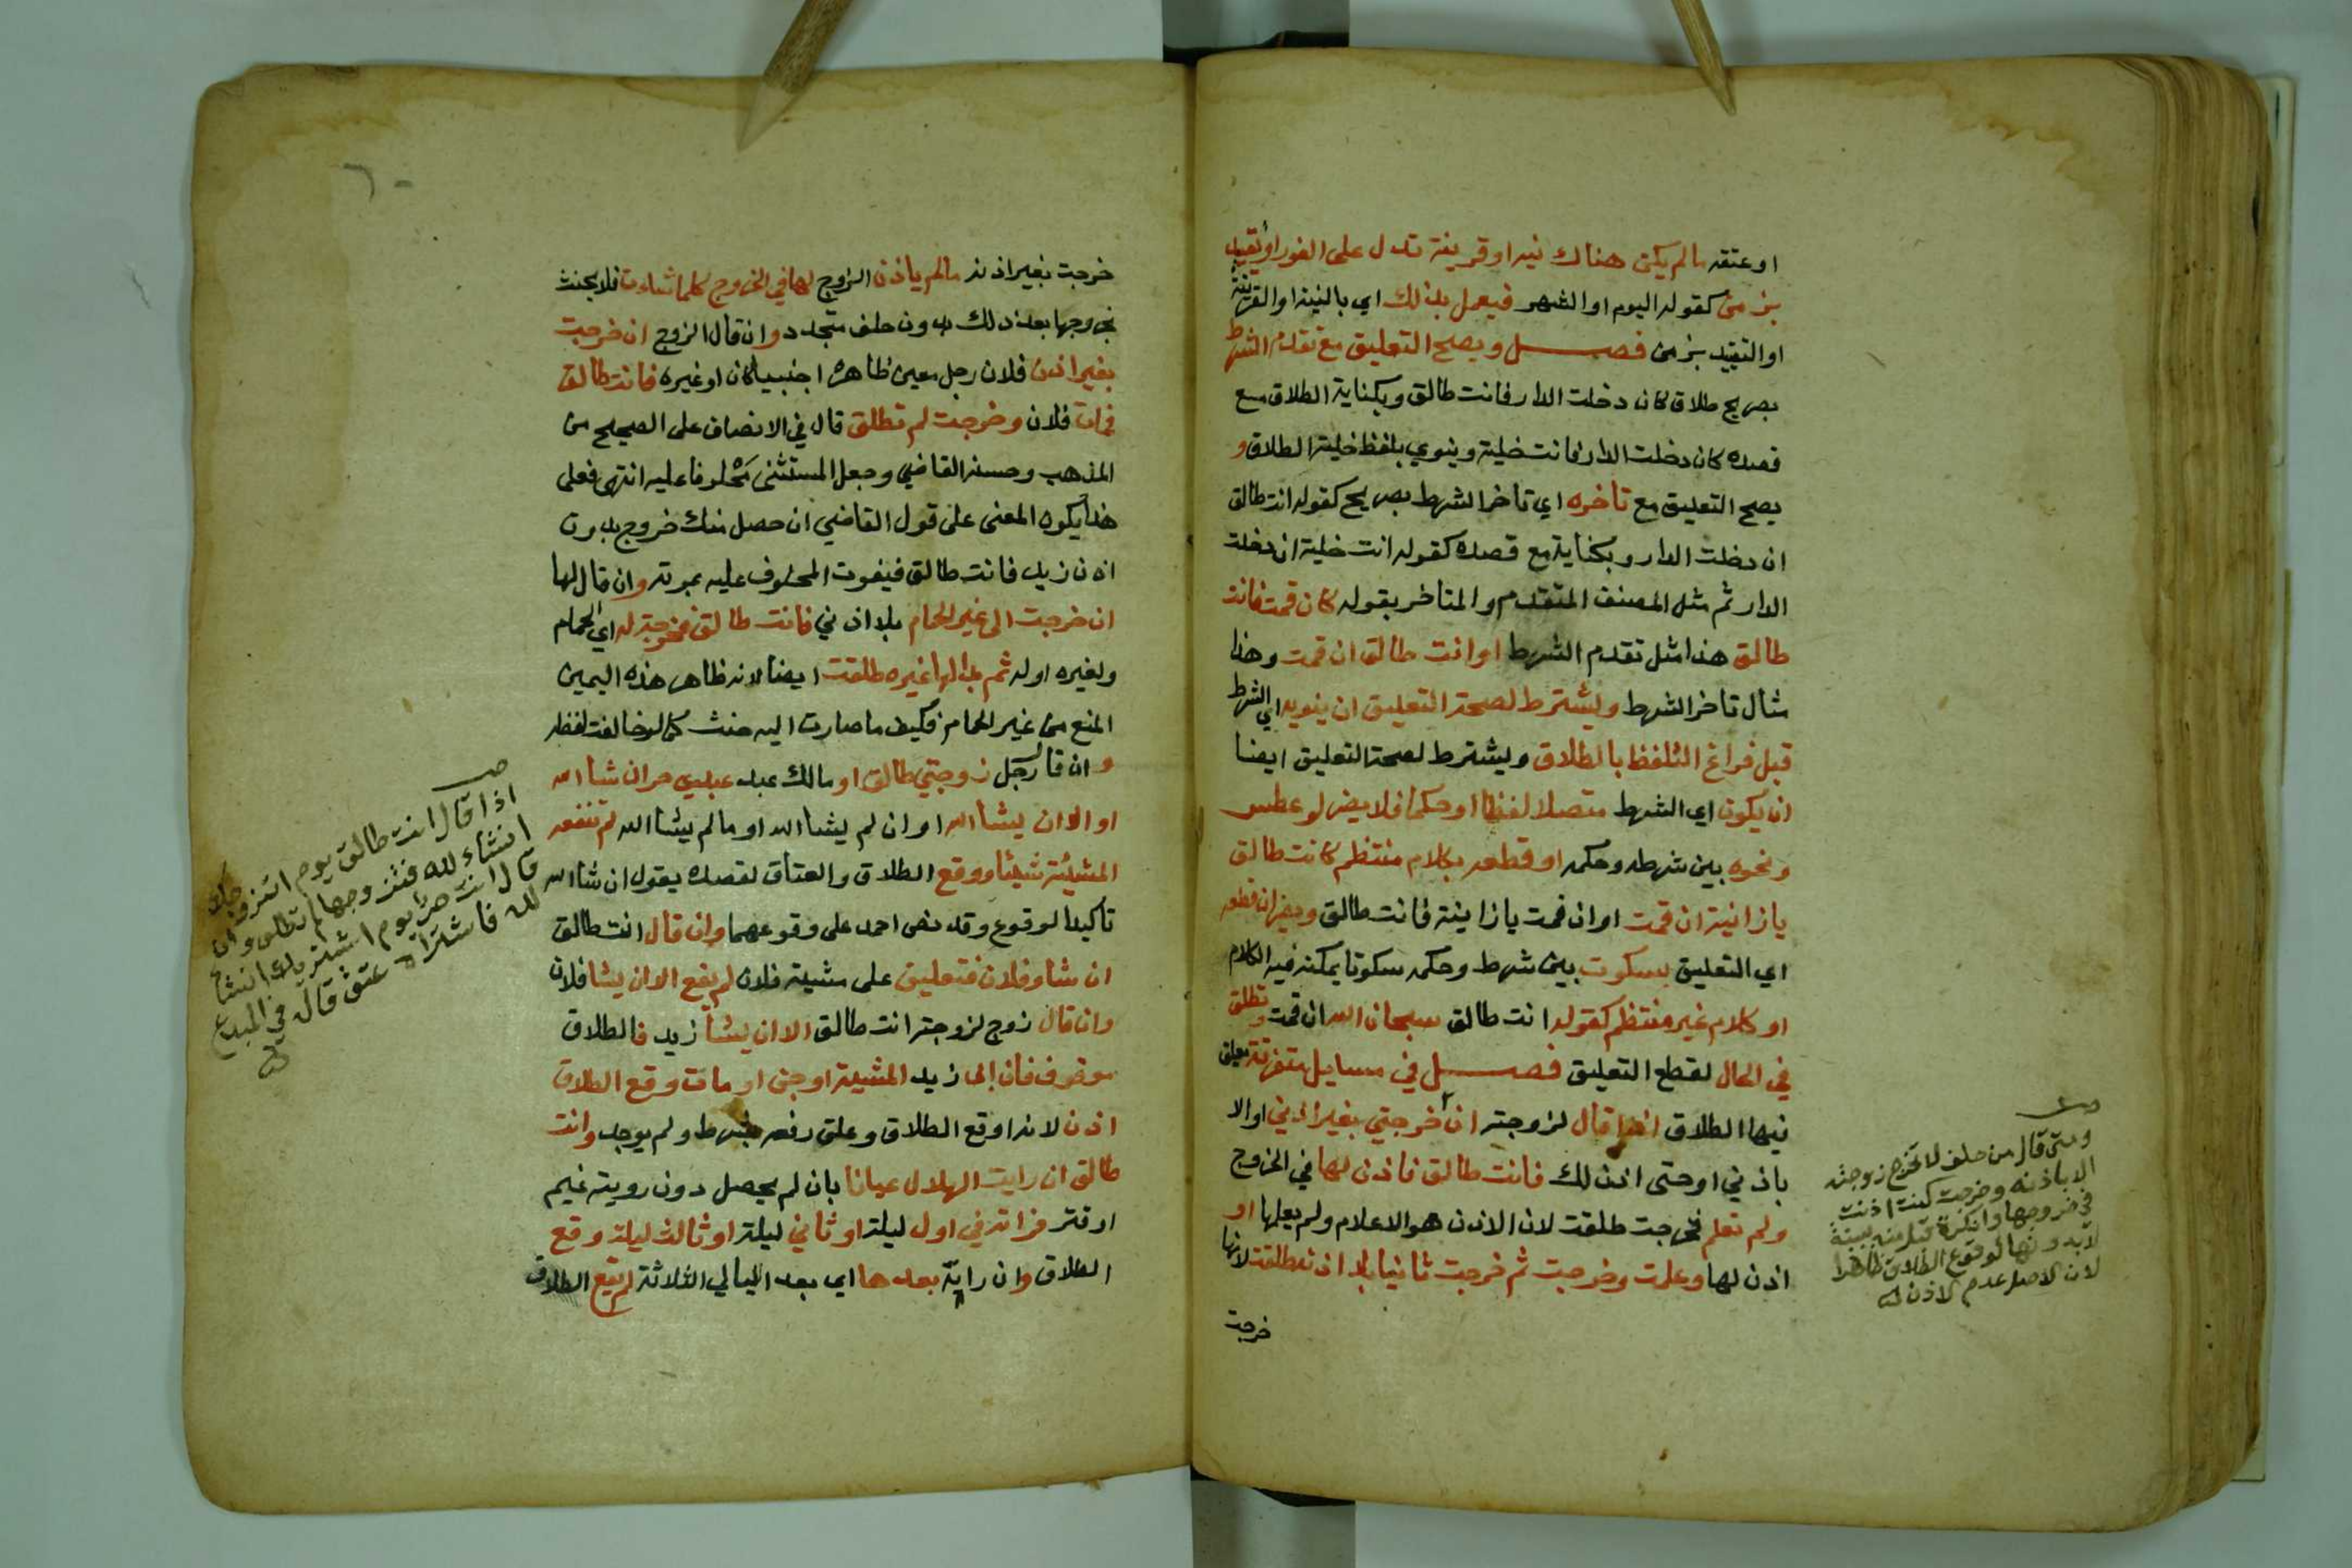 او عتقه مالم يكن هناك نيه او قرينة تدل على الفور او تقييد
بزمن كقوله اليوم او الشهر فيعمل بذلك اي بالنية او القرينة
او التقييد بزمن فصل ويصح التعليق مع تقدم الشرط
بصريح طلاق كان دخلت الدار فانت طالق وبكناية الطلاق مع
قصده كان دخلت الدار فانت خلية وينوي بلفظ خلية الطلاق و
يصح التعليق مع تاخره اي تاخر الشرط بصريح كقوله انت طالق
ان دخلت الدار وبكناية مع قصده كقوله انت خلية ان دخلت
الدار ثم مثل المصنف المتقدم والمتاخر بقوله كان قمت فانت
طالق هذا مثل تقدم الشرط او انت طالق ان قمت وهذا
مثال تاخر الشرط ويشترط لصحة التعليق ان ينويه اي الشرط
قبل فراغ التلفظ بالطلاق ويشترط لصحة التعليق ايضا
ان يكون اي الشرط متصلا لفظا او حكما فلا يضر لو عطس
ونحوه بين شرطه وحكمه او قطعه بكلام منتظم كانت طالق
يازانية ان قمت او ان قمت يازانية فانت طالق ويضر ان قطعه
اي التعليق بسكوت بين شرط وحكمه سكوتا يمكنه فيه الكلام
او كلام غير منتظم كقوله انت طالق سبحان الله ان قمت وتطلق
في الحال لقطع التعليق فصل في مسايل متفرقة يعلق
فيها الطلاق اذا قال لزوجته ان خرجتي بغير اذني او الا
باذني او حتى اذن لك فانت طالق فاذن لها في الخروج
ولم تعلم فخرجت طلقت لان الاذن هو الاعلام ولم يعلمها او
اذن لها وعلمت وخرجت ثم خرجت ثانيا بلا اذنه طلقت لانها
خرجت
صح
ومتى قال من حلف لا تخرج زوجته
الا باذنه وخرجت كنت اذنت
في خروجها وانكرة قبل منه ببينة
لا بدونها لوقوع الطلاق ظاهرا
لان الاصل عدم الاذن له
٦٠
خرجت بغير اذنه مالم ياذن الزوج لها في الخروج كلما شاءت فلا يحنث
بخروجها بعد ذلك بدون حلف متجدد وان قال الزوج ان خرجت
بغير اذن فلان رجل معين ظاهره اجنبيا كان او غيره فانت طالق
فمات فلان وخرجت لم تطلق قال في الانصاف على الصحيح من
المذهب وحسنه القاضي وجعل المستثنى محلوفا عليه انتهى فعلى
هذا يكون المعنى على قول القاضي ان حصل منك خروج بدون
اذن زيد فانت طالق فيفوت المحلوف عليه بموته وان قال لها
ان خرجت الى غير الحمام بلا اذني فانت طالق فخرجت له اي الحمام
ولغيره او له ثم بدا لها غيره طلقت ايضا لانه ظاهر هذه اليمين
المنع من غير الحام فكيف ما صارت اليه حنث كما لو خالفت لفظه
وان قال رجل زوجتي طالق او مالك عبد عبدي حر ان شا الله
او الا ان يشا الله او ان لم يشا الله او مالم يشا الله لم تنفعه
المشيئة شيئا ووقع الطلاق والعتاق لقصده بقوله ان شا الله
تاكيد الوقوع وقد نص احمد على وقوعهما وان قال انت طالق
ان شاء فلان فتعليق على مشيئة فلان لم يقع الا ان يشا فلان
وان قال زوج لزوجته انت طالق الا ان يشا زيد فالطلاق
موقوف فان ابى زيد المشيئة او جن او مات وقع الطلاق
اذن لانه اوقع الطلاق وعلق رفعه بشرط ولم يوجد وانت
طالق ان رايت الهلال عيانا بان لم يحصل دون رويته غيم
او قتر فراته في اول ليلة او ثاني ليلة او ثالث ليلة وقع
الطلاق وان راية بعدها اي بعد الليالي الثلاثة لم يقع الطلاق
صح
اذا قال انت طالق يوم اتزوجك
انشاء لله فتزوجها لم تطلق وان
قال انت حر يوم اشتريك انشاء
لله فاشتراه عتق قال في المبدع